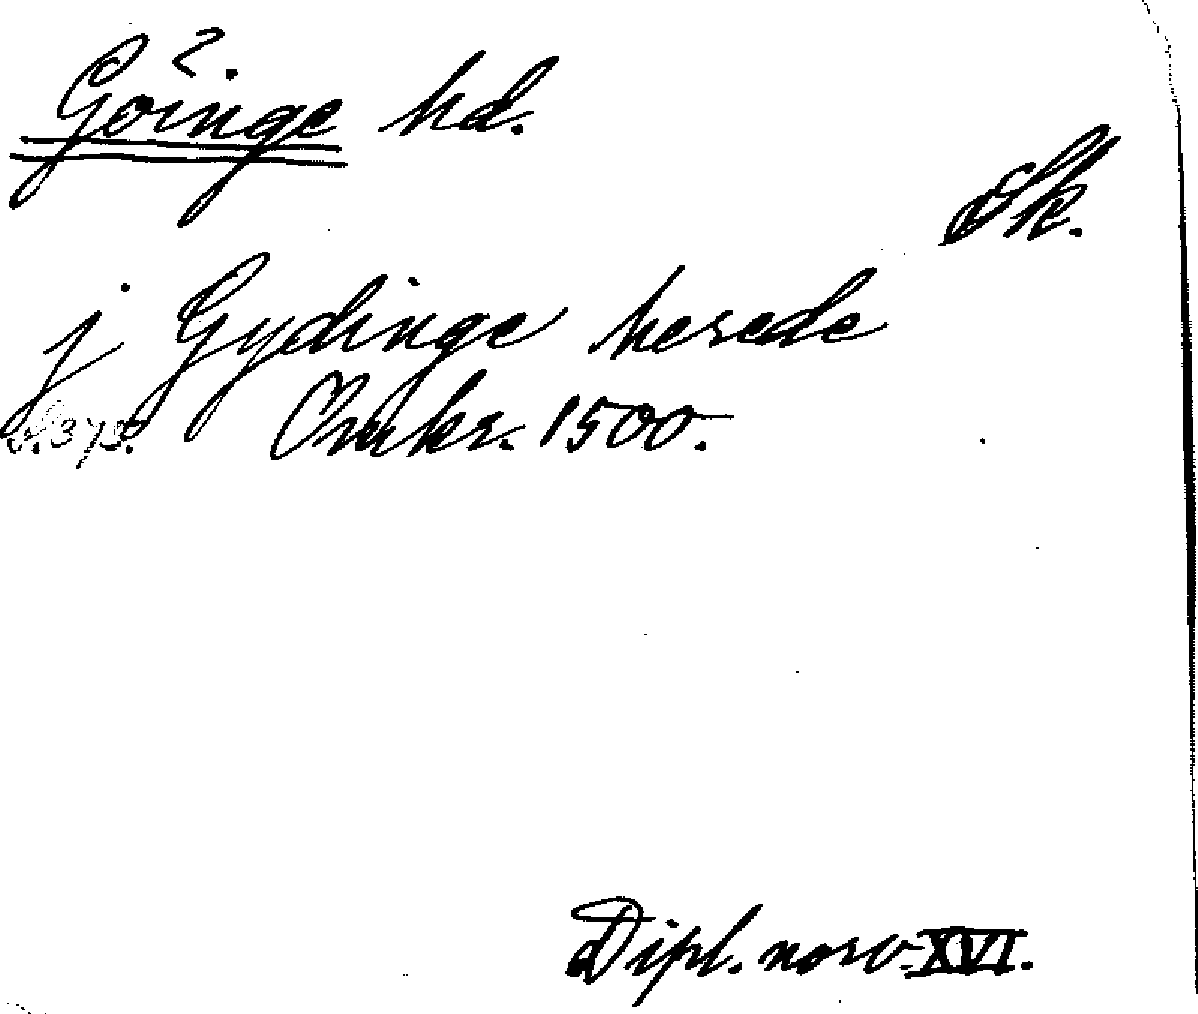 Göinge hd.
Sk.
j Gydinge herede
s. 373. Omkr. 1500.
Dipl. norv. XVI.